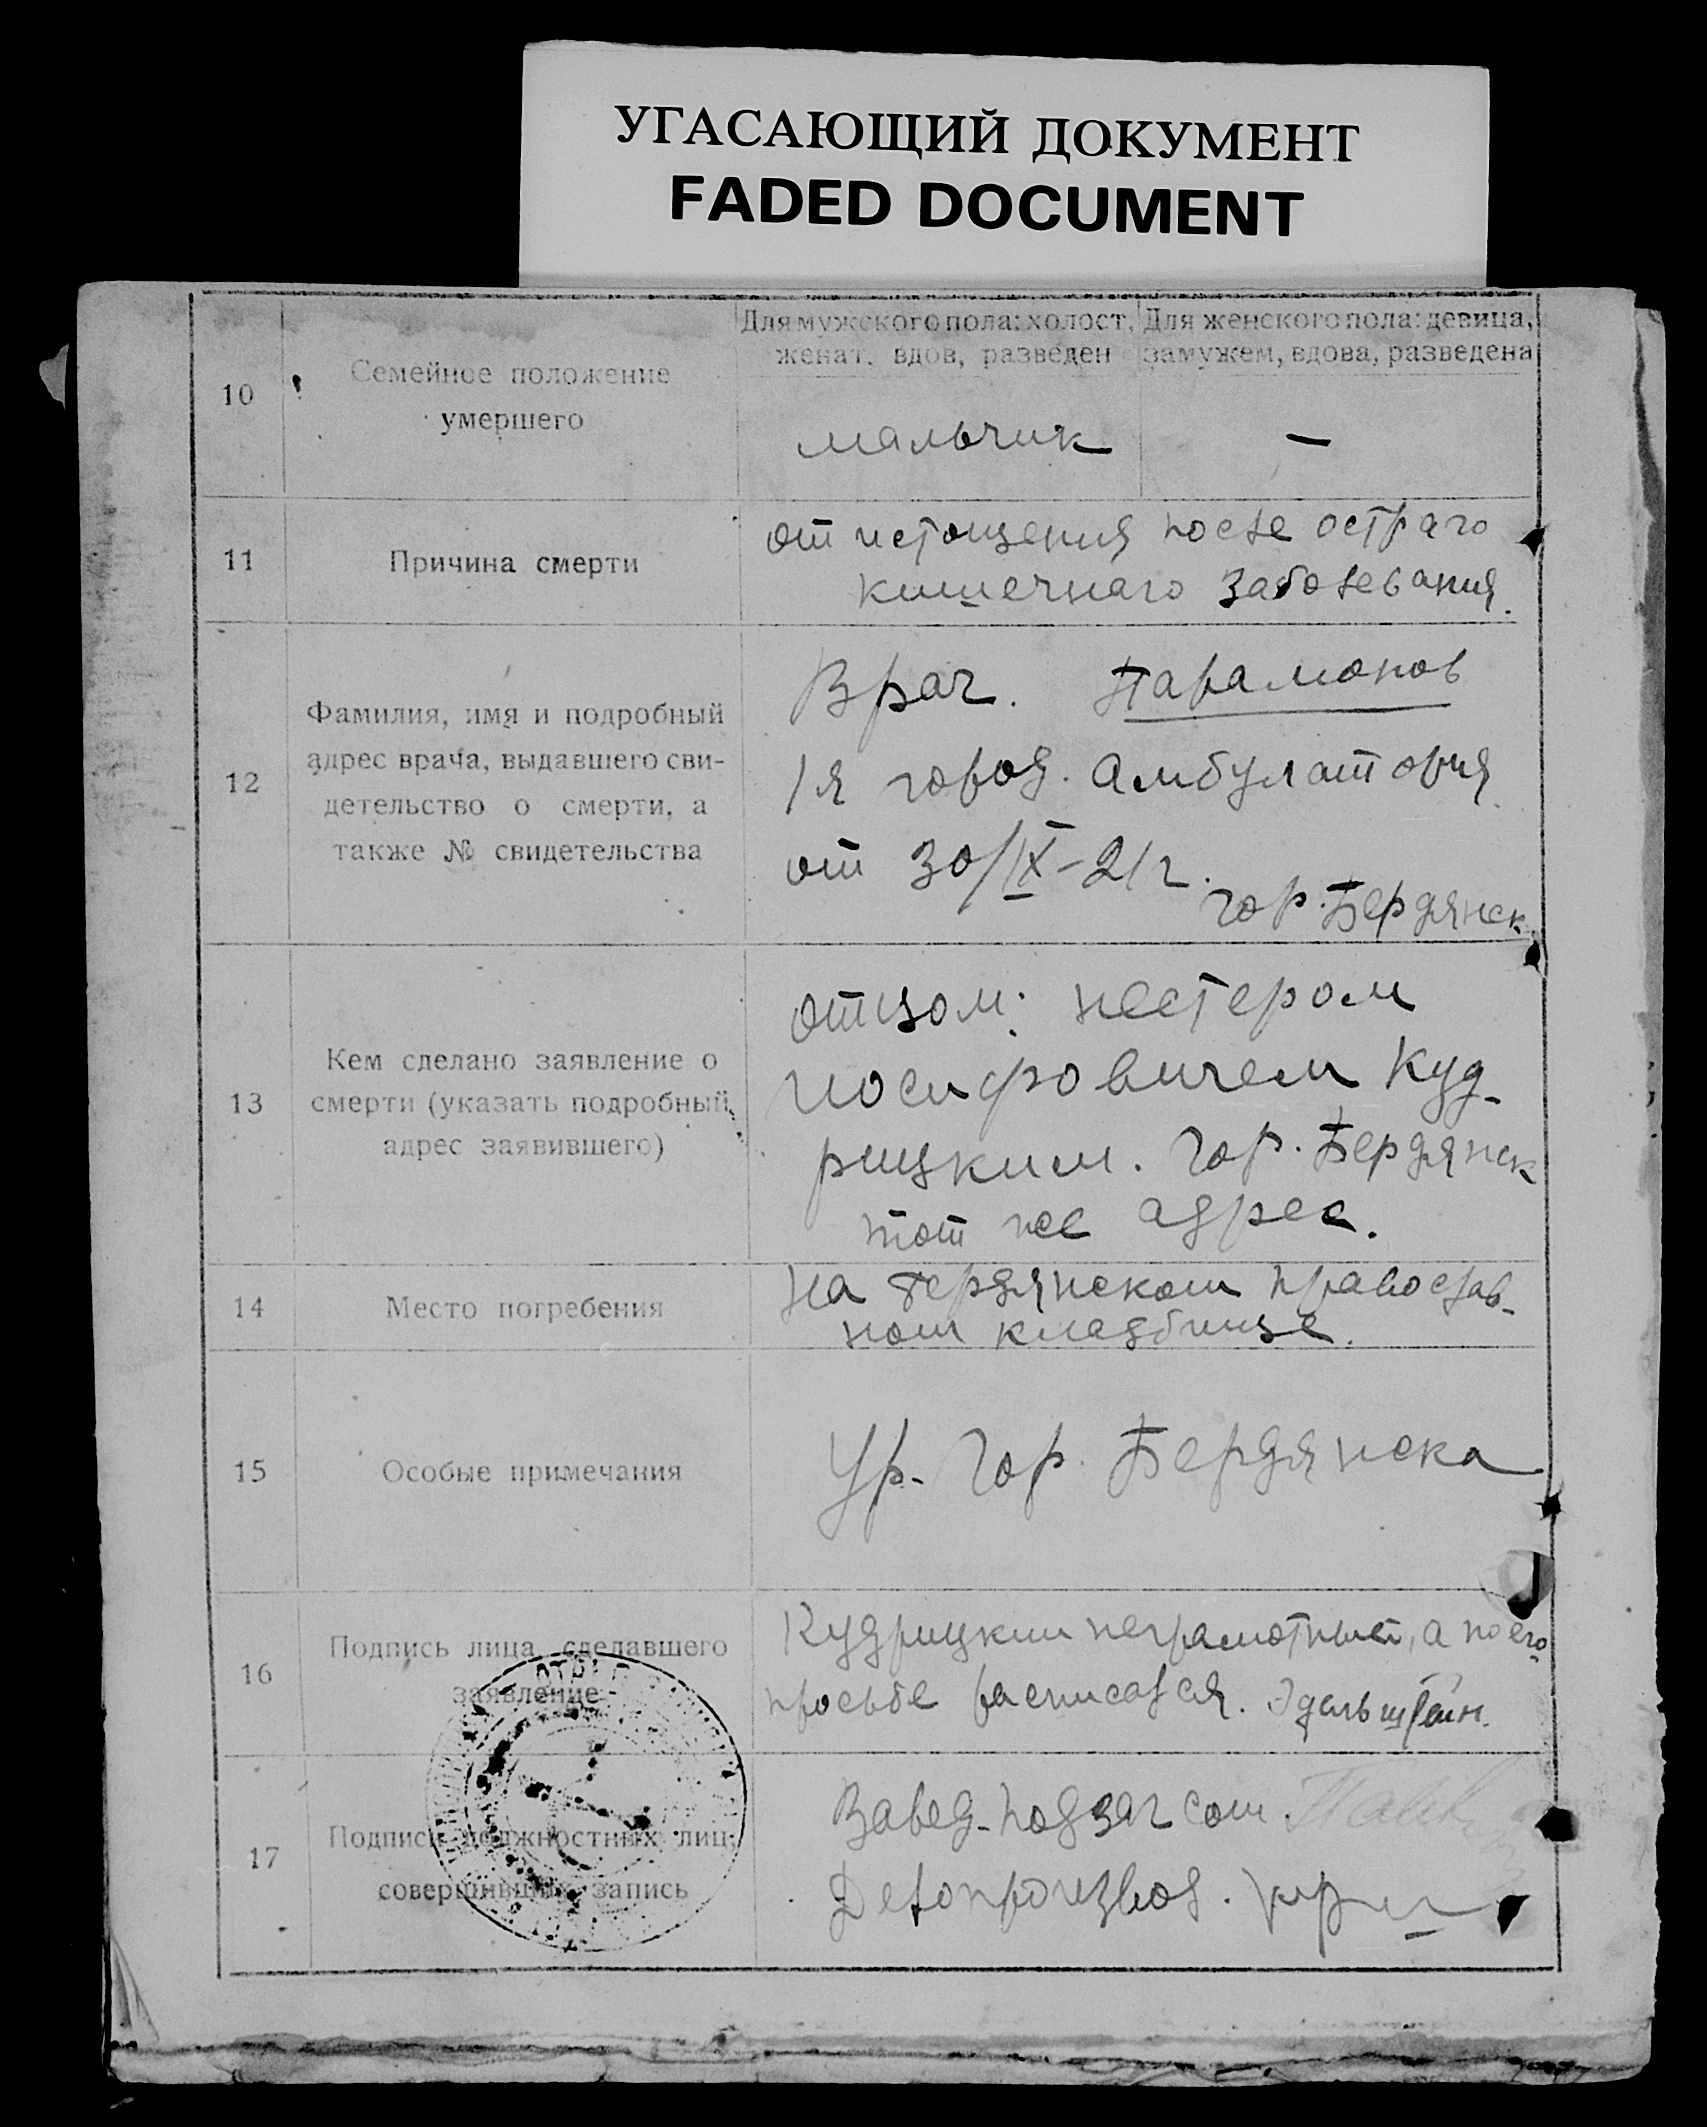 УГАСАЮЩИЙ ДОКУМЕНТ
FADED DOCUMENT
10
Семейное положение
умершего
Для мужского пола: холост,
женат, вдов, разведен
Для женского пола: девица,
замужем, вдова, разведена
мальчик
—
11
Причина смерти
от истощения после остраго
кишечнаго заболевания.
12
Фамилия, имя и подробный
адрес врача, выдавшего сви-
детельство о смерти, а
также № свидетельства
Врач. Парамонов
1я город. амбулатория
от 30/IX-21г.
гор. Бердянск
13
Кем сделано заявление о
смерти (указать подробный
адрес заявившего)
отцом: нестером
иосифовичем Куд-
рицким. гор. Бердянск
тот же адрес.
14
Место погребения
на бердянском православ-
ном кладбище.
15
Особые примечания
Ур. гор. Бердянска
16
Подпись лица, сделавшего
заявление
Кудрицкий неграмотный, а по его
просьбе расписался. Эдельштейн.
17
Подписи должностных лиц,
совершивших запись
Завед. подзагсом
Делопроизвод.